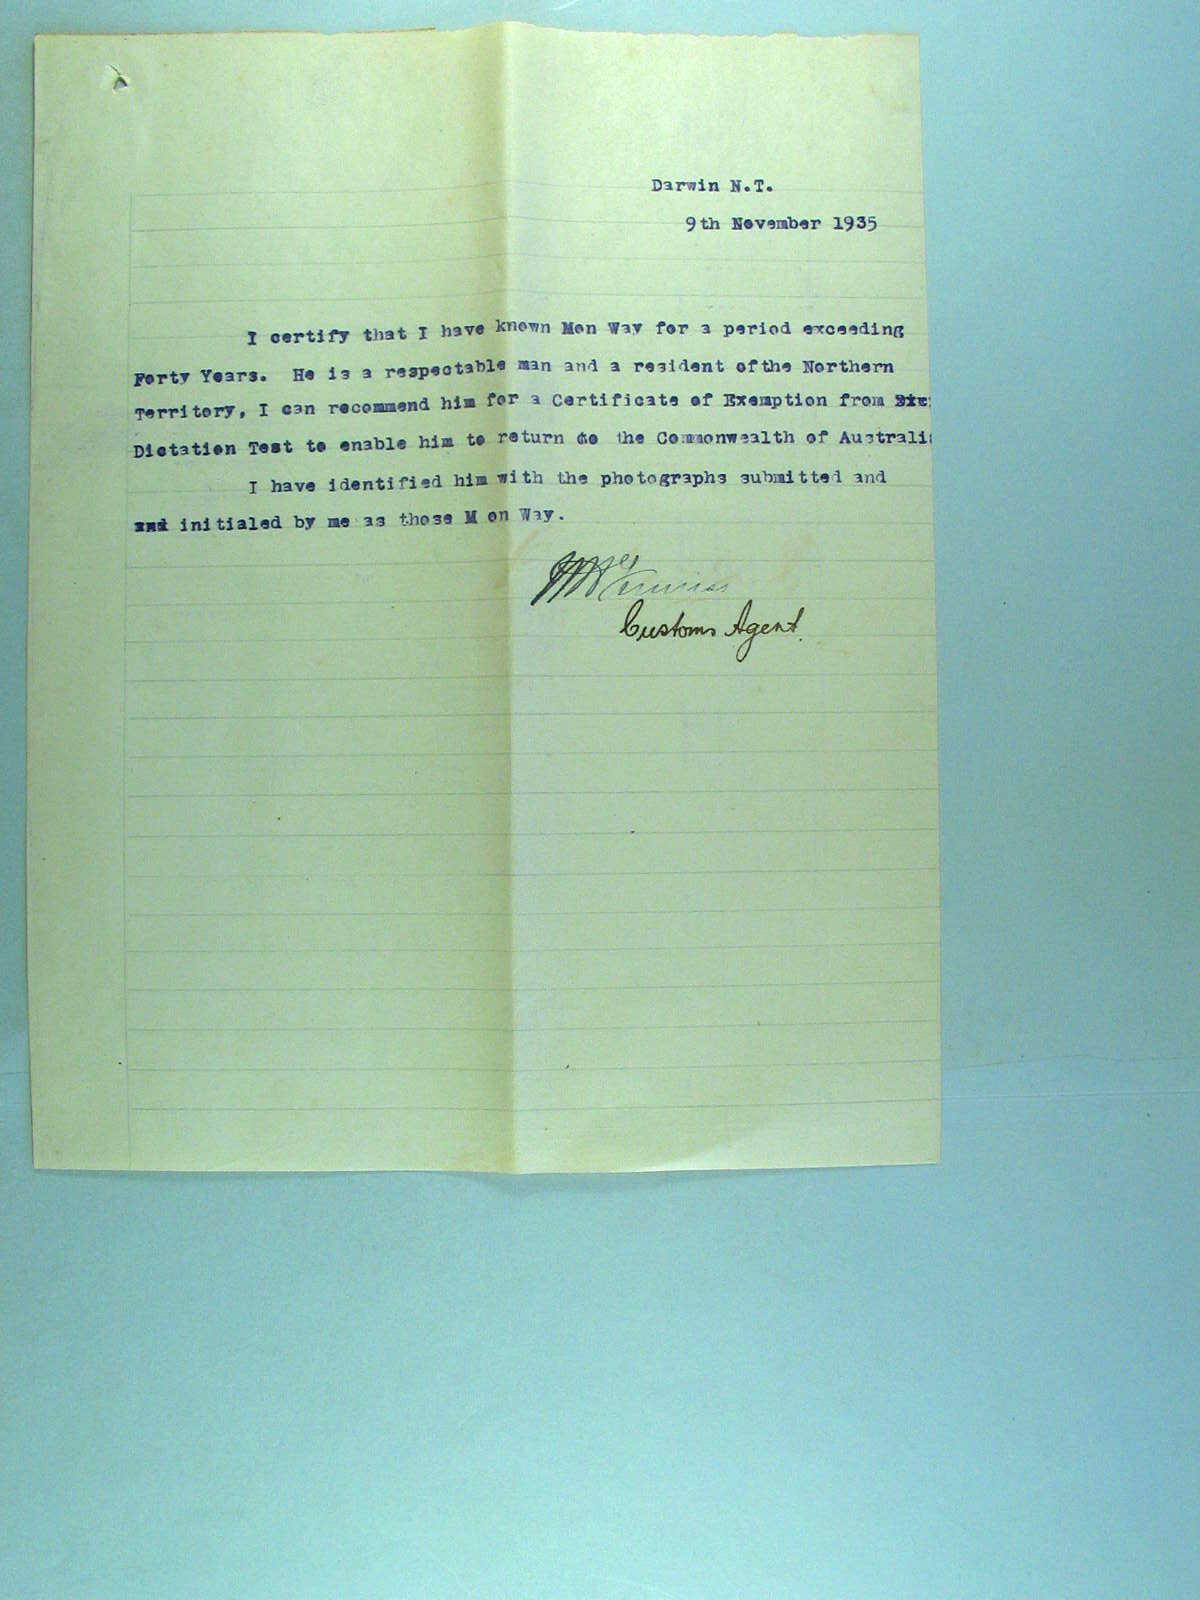 Darwin N.T.
9th November 1935
I certify that I have known Mon Way for a period exceeding
Forty Years. He is a respectable man and a resident ofthe Northern
Territory, I can recommend him for a Certificate of Exemption from
Dictation Test to enable him to return to the Commonwealth of Australi
I have identified him with the photographs submitted and
and initialed by me as those M on Way.
Customs Agent.